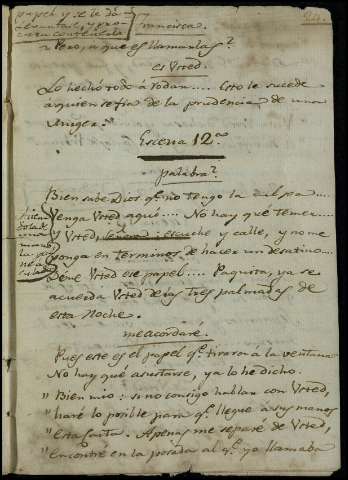 papel, y se le dé
Francisca.
24.
Pero, a que es llamarlas?
es Usted.
Lo hechó todo á rodar..... Esto le sucede
a quien se fia de la prudencia de una
Muger.
Escena 12.ª
palabra?
Bien sabe Dios q.e no tengo la culpa....
Venga Usted aquí.... No hay qué temer....
Y Usted, señora: escuche y calle, y no me
ponga en terminos de hacer un desatino....
Déme Usted ese papel.... Paquita, ya se
acuerda Usted de las tres palmadas de
esta Noche.
me acordaré.
Pues este es el papel q.e tiraron á la ventana
No hay qué asustarse, ya lo he dicho.
" Bien mio: si no consigo hablar con Usted,
" haré lo posible para q.e llegue a sus manos
" Esta Carta. Apenas me separé de Usted,
" Encontré en la posada al q.e ya llamaba